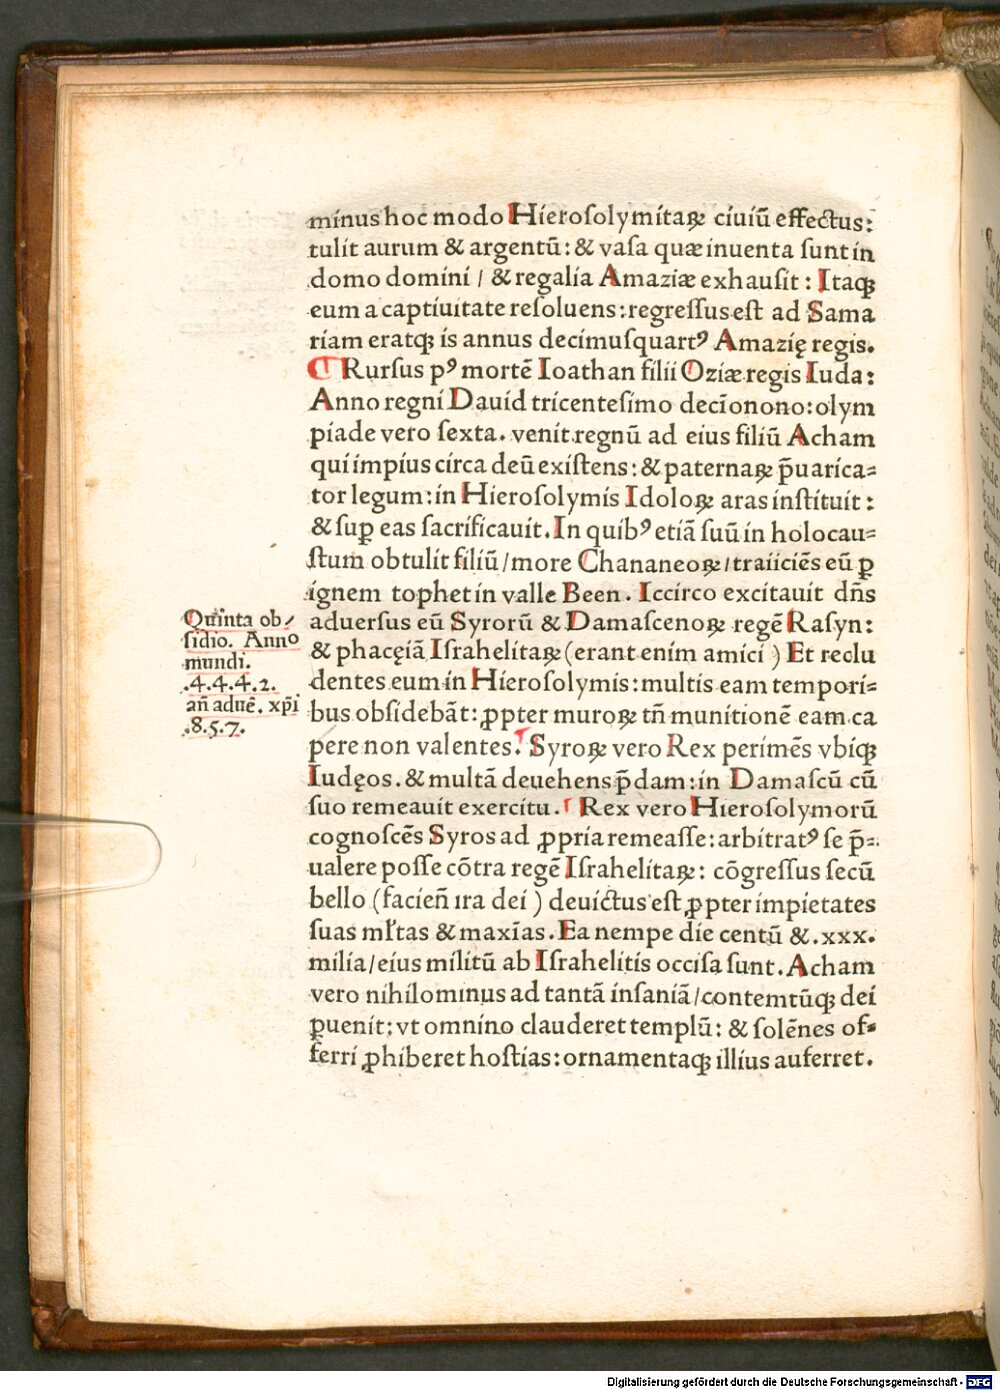 minus hoc modo Hieroſolymitaꝝ ciuiū effectus:
tulit aurum & argentū: & vaſa quæ inuenta ſunt in
domo domini / & regalia Amaziæ exhauſit : Itaqꝫ
eum a captiuitate reſoluens: regreſſus eſt ad Sama
riam eratqꝫ is annus decimuſquartꝰ Amazię regis.
¶ Rurſus pꝰ mortē Ioathan filii Oziæ regis Iuda:
Anno regni Dauid tricenteſimo decīonono: olym
piade vero ſexta. venit regnū ad eius filiū Acham
qui impius circa deū exiſtens: & paternaꝝ p̄uarica⸗
tor legum: in Hieroſolymis Idoloꝝ aras inſtituit :
& ſuꝑ eas ſacrificauit. In quibꝰ etiā ſuū in holocau⸗
ſtum obtulit filiū / more Chananeoꝝ / traiiciēs eū ꝑ
ignem tophet in valle Been. Iccirco excitauit dn̄s
aduerſus eū Syrorū & Damaſcenoꝝ regē Raſyn:
& phacęiā Iſrahelitaꝝ (erant enim amici ) Et reclu
dentes eum in Hieroſolymis: multis eam tempori⸗
bus obſidebāt: ꝓpter muroꝝ tn̄ munitionē eam ca
pere non valentes. ¶ Syroꝝ vero Rex perimēs vbiqꝫ
Iudęos. & multā deuehens p̄dam: in Damaſcū cū
ſuo remeauit exercitu. ¶ Rex vero Hieroſolymorū
cognoſcēs Syros ad ꝓpria remeaſſe: arbitratꝰ ſe p̄⸗
ualere poſſe cōtra regē Iſrahelitaꝝ: cōgreſſus ſecū
bello (facien̄ ira dei ) deuictus eſt ꝓpter impietates
ſuas ml̄tas & maxīas. Ea nempe die centū &. xxx.
milia / eius militū ab Iſrahelitis occiſa ſunt. Acham
vero nihilominus ad tantā inſaniā / contemtūqꝫ dei
ꝑuenit: vt omnino clauderet templū: & ſolēnes of⸗
ferri ꝓhiberet hoſtias: ornamentaqꝫ illius auferret.
Quinta ob⸗
ſidio. Anno
mundi.
.4.4.4.2.
an̄ aduē. xp̄i
.8.5.7.
Digitalisierung gefördert durch die Deutsche Forschungsgemeinschaft - DFG